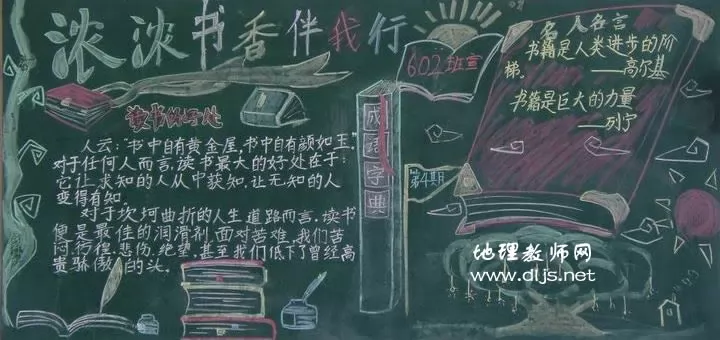 浓浓书香伴我行
602班宣
读书的好处
人云:书中自有黄金屋,书中自有颜如玉,
对于任何人而言,读书最大的好处在于:
它让求知的人从中获知,让无知的人
变得有知。
对于坎坷曲折的人生道路而言,读书
便是最佳的润滑剂.面对苦难,我们苦
闷.彷徨.悲伤.绝望,甚至我们低下了曾经高
贵骄傲的头。
成语字典
第4期
名人名言
书籍是人类进步的阶
梯。
——高尔基
书籍是巨大的力量
——列宁
地理教师网
www.dljs.net